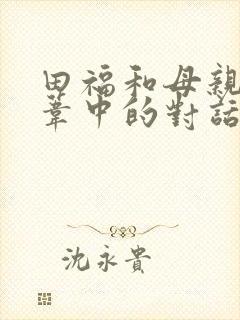 田福和母親
葦中的對話
沈永貴